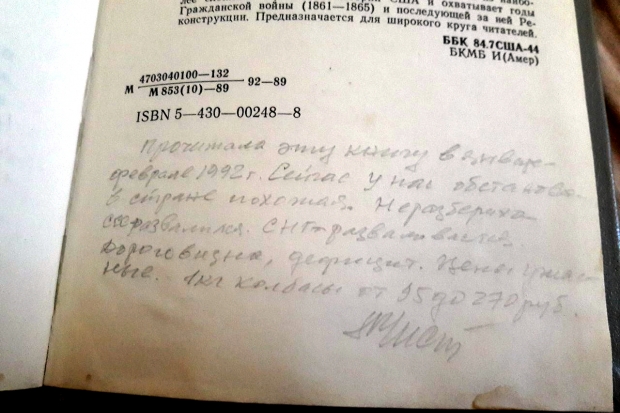 США и охватывает годы
Гражданской войны (1861—1865) и последующей за ней Ре-
конструкции. Предназначается для широкого круга читателей.
ББК 84.7США-44
БКМБ И(Амер)
М 4703040100—132 92—89
М 853(10)—89
ISBN 5—430—00248—8
Прочитала эту книгу в январе-
феврале 1992 г. Сейчас у нас обстановка
в стране похожая. Неразбериха
развалился. СНГ разваливается.
Дороговизна, дефицит. Цены ужас-
ные. 1 кг колбасы от 95 до 270 руб.